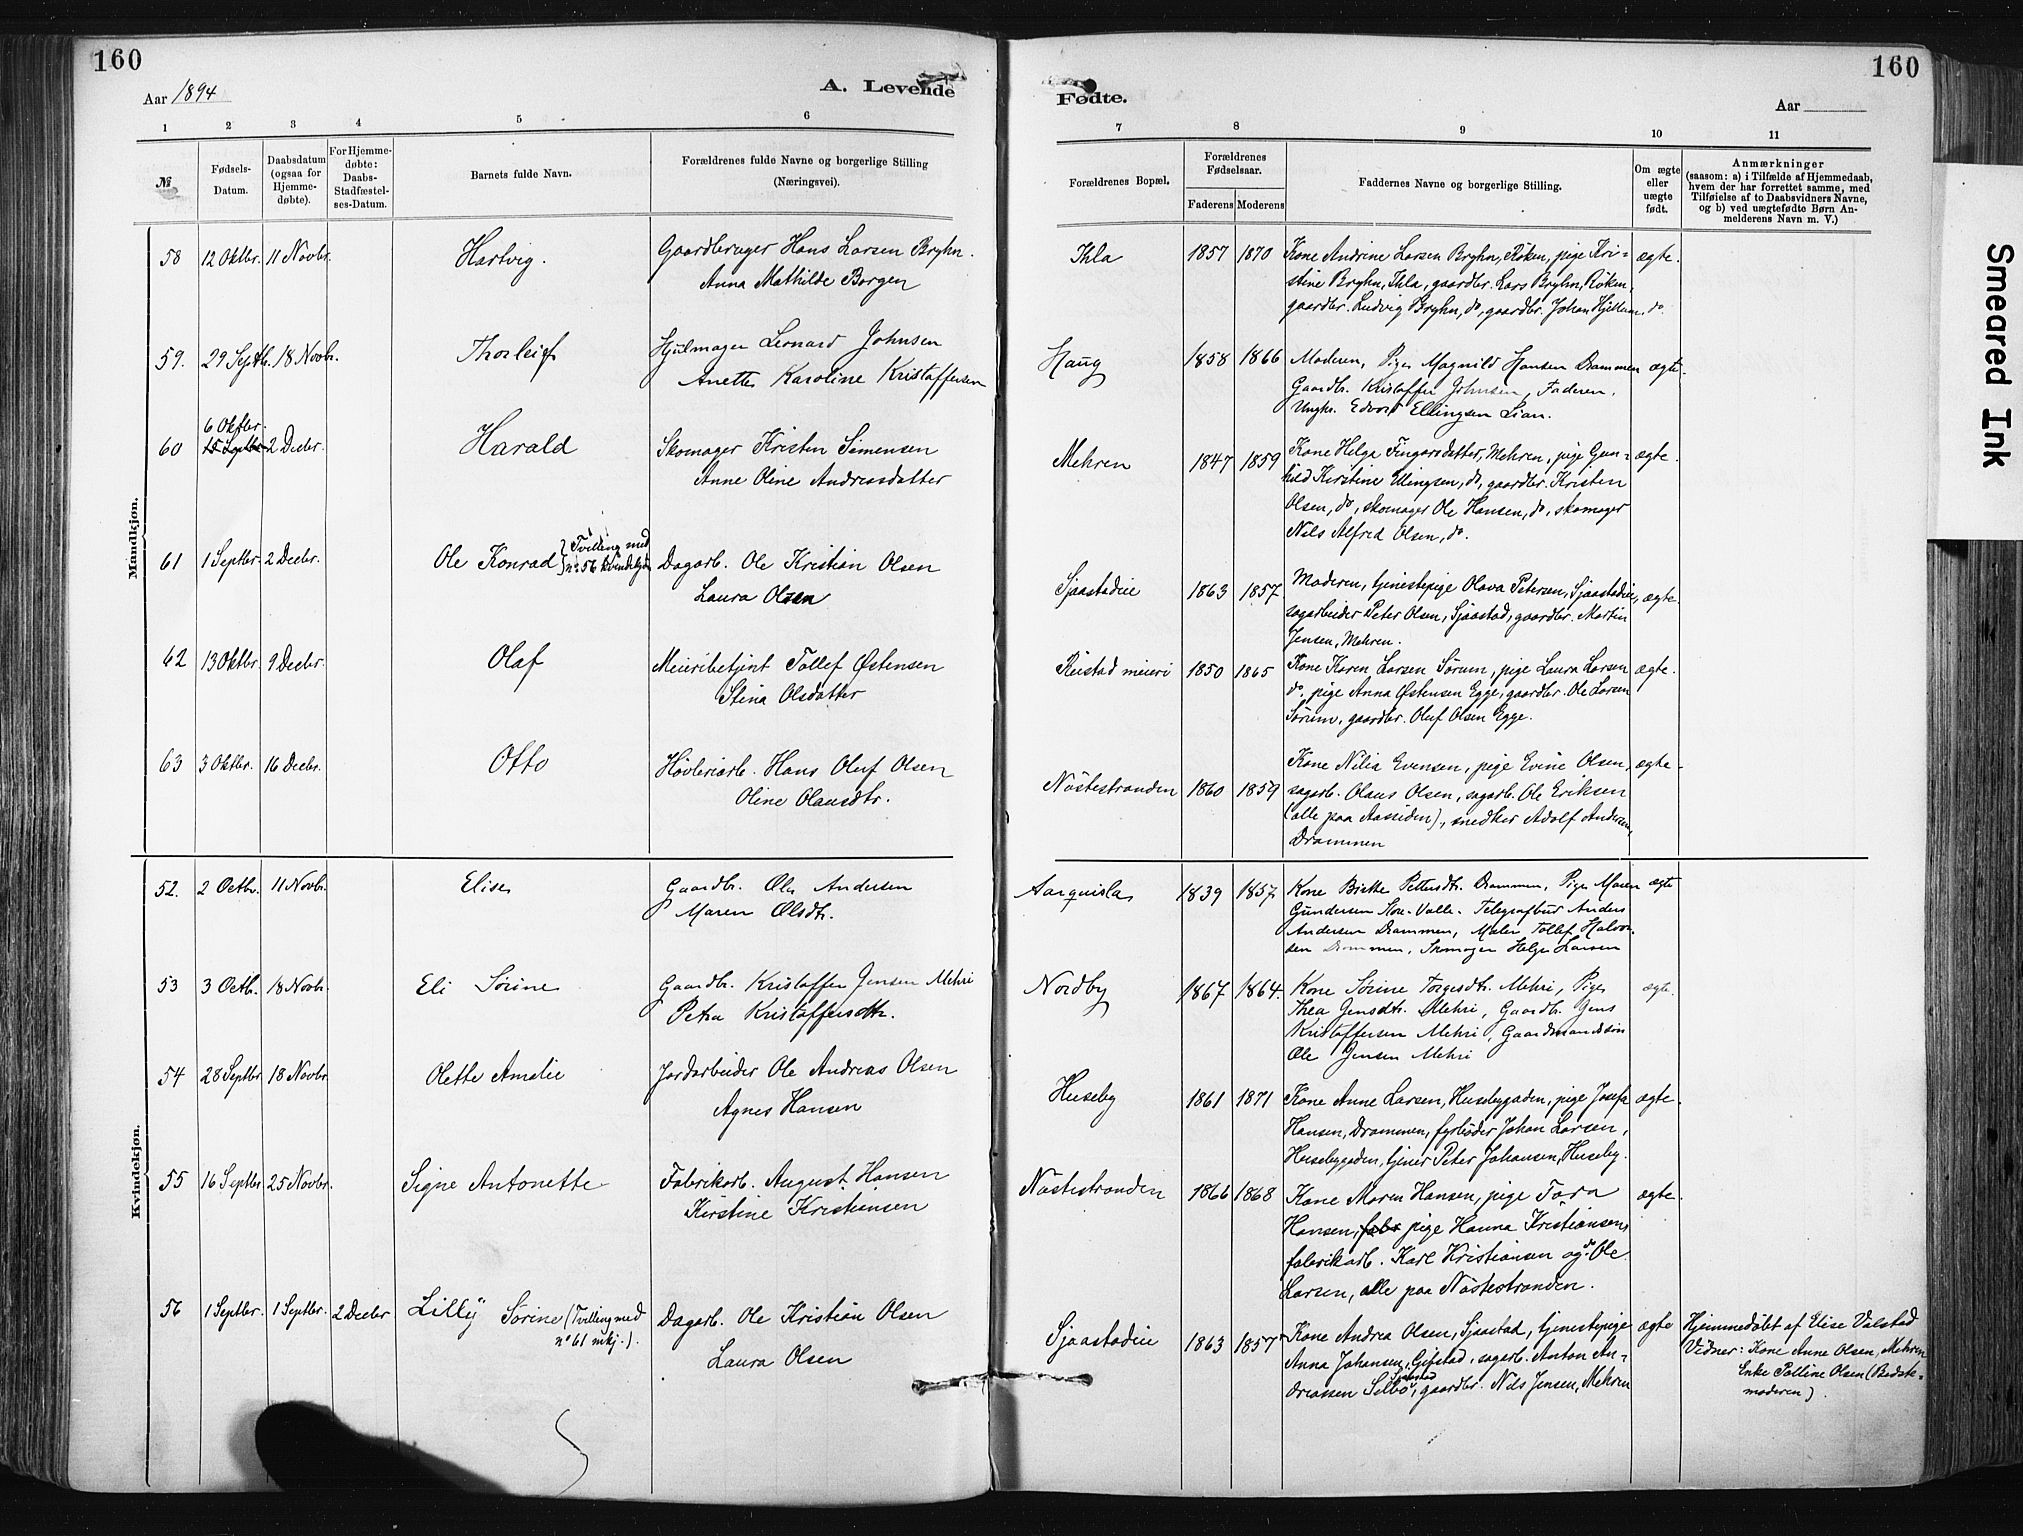 160
Aar 1894
A. Levende
1 2 3 4 5 6
№
Fødsels-Datum.
Daabsdatum (ogsaa for Hjemme-døbte).
For Hjemme-døbte: Daabs-Stadfæstel-ses-Datum.
Barnets fulde Navn.
Forældrenes fulde Navne og borgerlige Stilling
(Næringsvei).
Mandkjøn.
58 12 Oktbr. 11 Novbr. Hartvig. Gaardbruger Hans Larsen Bryhn.
Anna Mathilde Borgen
59. 29 Septbr. 18 Novbr. Thorleif Hjulmager Leonard Johnsen
Anette Karoline Kristoffersen
6 Oktbr.
60 15 Septbr 2 Decbr. Harald Skomager Kristen Simensen
Anne Oline Andreasdatter
61 1 Septbr. 2 Decbr. Ole Konrad (Tvilling med
no 56 kvindekjøn) Dagarb. Ole Kristian Olsen
Laura Olsen
62 13 Oktbr. 9 Decbr. Olaf Meieribetjent Tollef Østensen
Stina Olsdatter
63 3 Oktbr. 16 Decbr. Otto Høvleriarb. Hans Oluf Olsen
Oline Olausdtr.
Kvindekjøn.
52. 2 Octbr. 11 Novbr. Elise Gaardbr. Ole Andersen
Maren Olsdtr.
53 3 Octb. 18 Novbr. Eli Sørine Gaardbr. Kristoffer Jensen Mehri
Petra Kristoffersdtr.
54 28 Septbr 18 Novbr. Olette Amalie Jordarbeider Ole Andreas Olsen
Agnes Hansen
55 16 Septbr 25 Novbr. Signe Antonette Fabrikarb. August Hansen
Kirstine Kristiansen
56 1 Septbr. 1 Septbr. 2 Decbr Lilly Sørine (Tvilling med
no 61 mkj.). Dagarb. Ole Kristian Olsen
Laura Olsen
160
Fødte.
Aar
7 8 9 10 11
Forældrenes Bopæl.
Forældrenes Fødselsaar.
Faderens Moderens
Faddernes Navne og borgerlige Stilling.
Om ægte eller uægte født.
Anmærkninger
(saasom: a) i Tilfælde af Hjemmedaab,
hvem der har forrettet samme, med
Tilføielse af to Daabsvidners Navne,
og b) ved uægtefødte Børn An-
melderens Navn m. V.)
Ihla 1857 1870 Kone Andrine Larsen Bryhn, Røken, pige Kri- ægte.
stine Bryhn, Ihla, gaardbr. Lars Bryhn, Røken,
gaardbr. Ludvig Bryhn, do, gaardbr. Johan Hjellum, do.
Haug 1858 1866 Moderen, Pige Magnild Hansen Drammen ægte.
Gaardb. Kristoffer Johnsen, Faderen,
Ungk. Edvard Ellingsen Lian.
Mehren 1847 1859 Kone Helga Fingarsdatter, Mehren, pige Gun- ægte.
hild Kirstine Ellingsen, do, gaardbr. Kristen
Olsen, do, skomager Ole Hansen, do, skomager
Nils Alfred Olsen, do.
Sjaastadeie 1863 1857 Moderen, tjenestepige Olava Petersen, Sjaastadeie, ægte.
sagarbeider Peter Olsen, Sjaastad, gaardbr. Martin
Jensen, Mehren.
Reistad meieri 1850 1865 Kone Karen Larsen Sørum, pige Laura Larsen ægte.
do, pige Anna Østensen Egge, gaardbr. Ole Larsen
Sørum, gaardbr. Oluf Olsen Egge.
Nøstestranden 1860 1859 Kone Nilia Evensen, pige Evine Olsen, ægte.
sagarb. Olaus Olsen, sagarb. Ole Eriksen
(alle paa Aassiden), snedker Adolf Andersen,
Drammen
Aarquisla 1839 1857 Kone Birthe Pettersdtr. Drammen, Pige Maren ægte
Gundersen Stor-Valle. Telegrafbud Anders
Andersen Drammen, Maler Tollef Halvor-
sen Drammen, Skomager Helge Larsen
Nordby 1867 1864. Kone Sørine Torgesdtr. Mehri, Pige ægte.
Thea Jensdtr. Mehri, Gaardbr. Jens
Kristoffersen Mehri, Gaardmandssøn
Ole Jensen Mehri
Huseby 1861 1871 Kone Anne Larsen, Husebygaden, pige Josefa ægte.
Hansen, Drammen, fyrbøder Johan Larsen,
Husebygaden, tjener Peter Johansen, Huseby.
Nøstestranden 1866 1868 Kone Maren Hansen, pige Tora ægte.
Hansen, fabr pige Hanna Kristiansen,
fabrikarb. Karl Kristiansen og do Ole
Larsen, alle paa Nøstestranden.
Sjaastadeie 1863 1857 Kone Andrea Olsen, Sjaastad, tjenestepige ægte Hjemmedøbt af Elise Valstad
Anna Johansen, Gifstad, sagarb. Anton An- Vidner: Kone Anne Olsen, Mehren
Sjaastad
dreassen Selbo, gaardbr. Nils Jensen, Mehren Enke Polline Olsen (Bedste-
moderen).
Smeared Ink